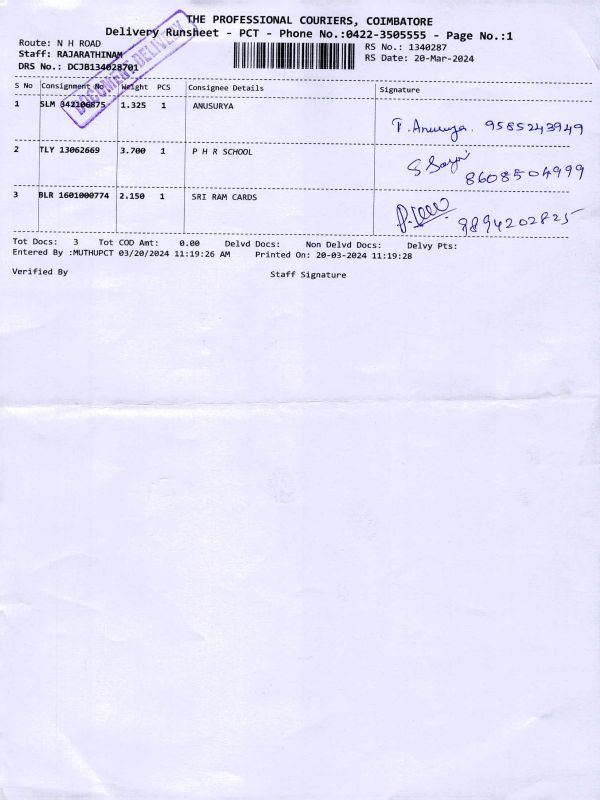 THE PROFESSIONAL COURIERS, COIMBATORE
Delivery Runsheet - PCT - Phone No.:0422-3505555 - Page No.:1
Route: N H ROAD
Staff: RAJARATHINAM
DRS No.: DCJB134028701
RS No.: 1340287
RS Date: 20-Mar-2024
DOCUMENT DELIVERY
S No Consignment No Weight PCS Consignee Details Signature
1 SLM 842106875 1.325 1 ANUSURYA
T. Anusurya. 9585243949
2 TLY 13062669 3.700 1 P H R SCHOOL
8608504999
3 BLR 1601000774 2.150 1 SRI RAM CARDS
9894202825
Tot Docs: 3 Tot COD Amt: 0.00 Delvd Docs: Non Delvd Docs: Delvy Pts:
Entered By :MUTHUPCT 03/20/2024 11:19:26 AM Printed On: 20-03-2024 11:19:28
Verified By Staff Signature